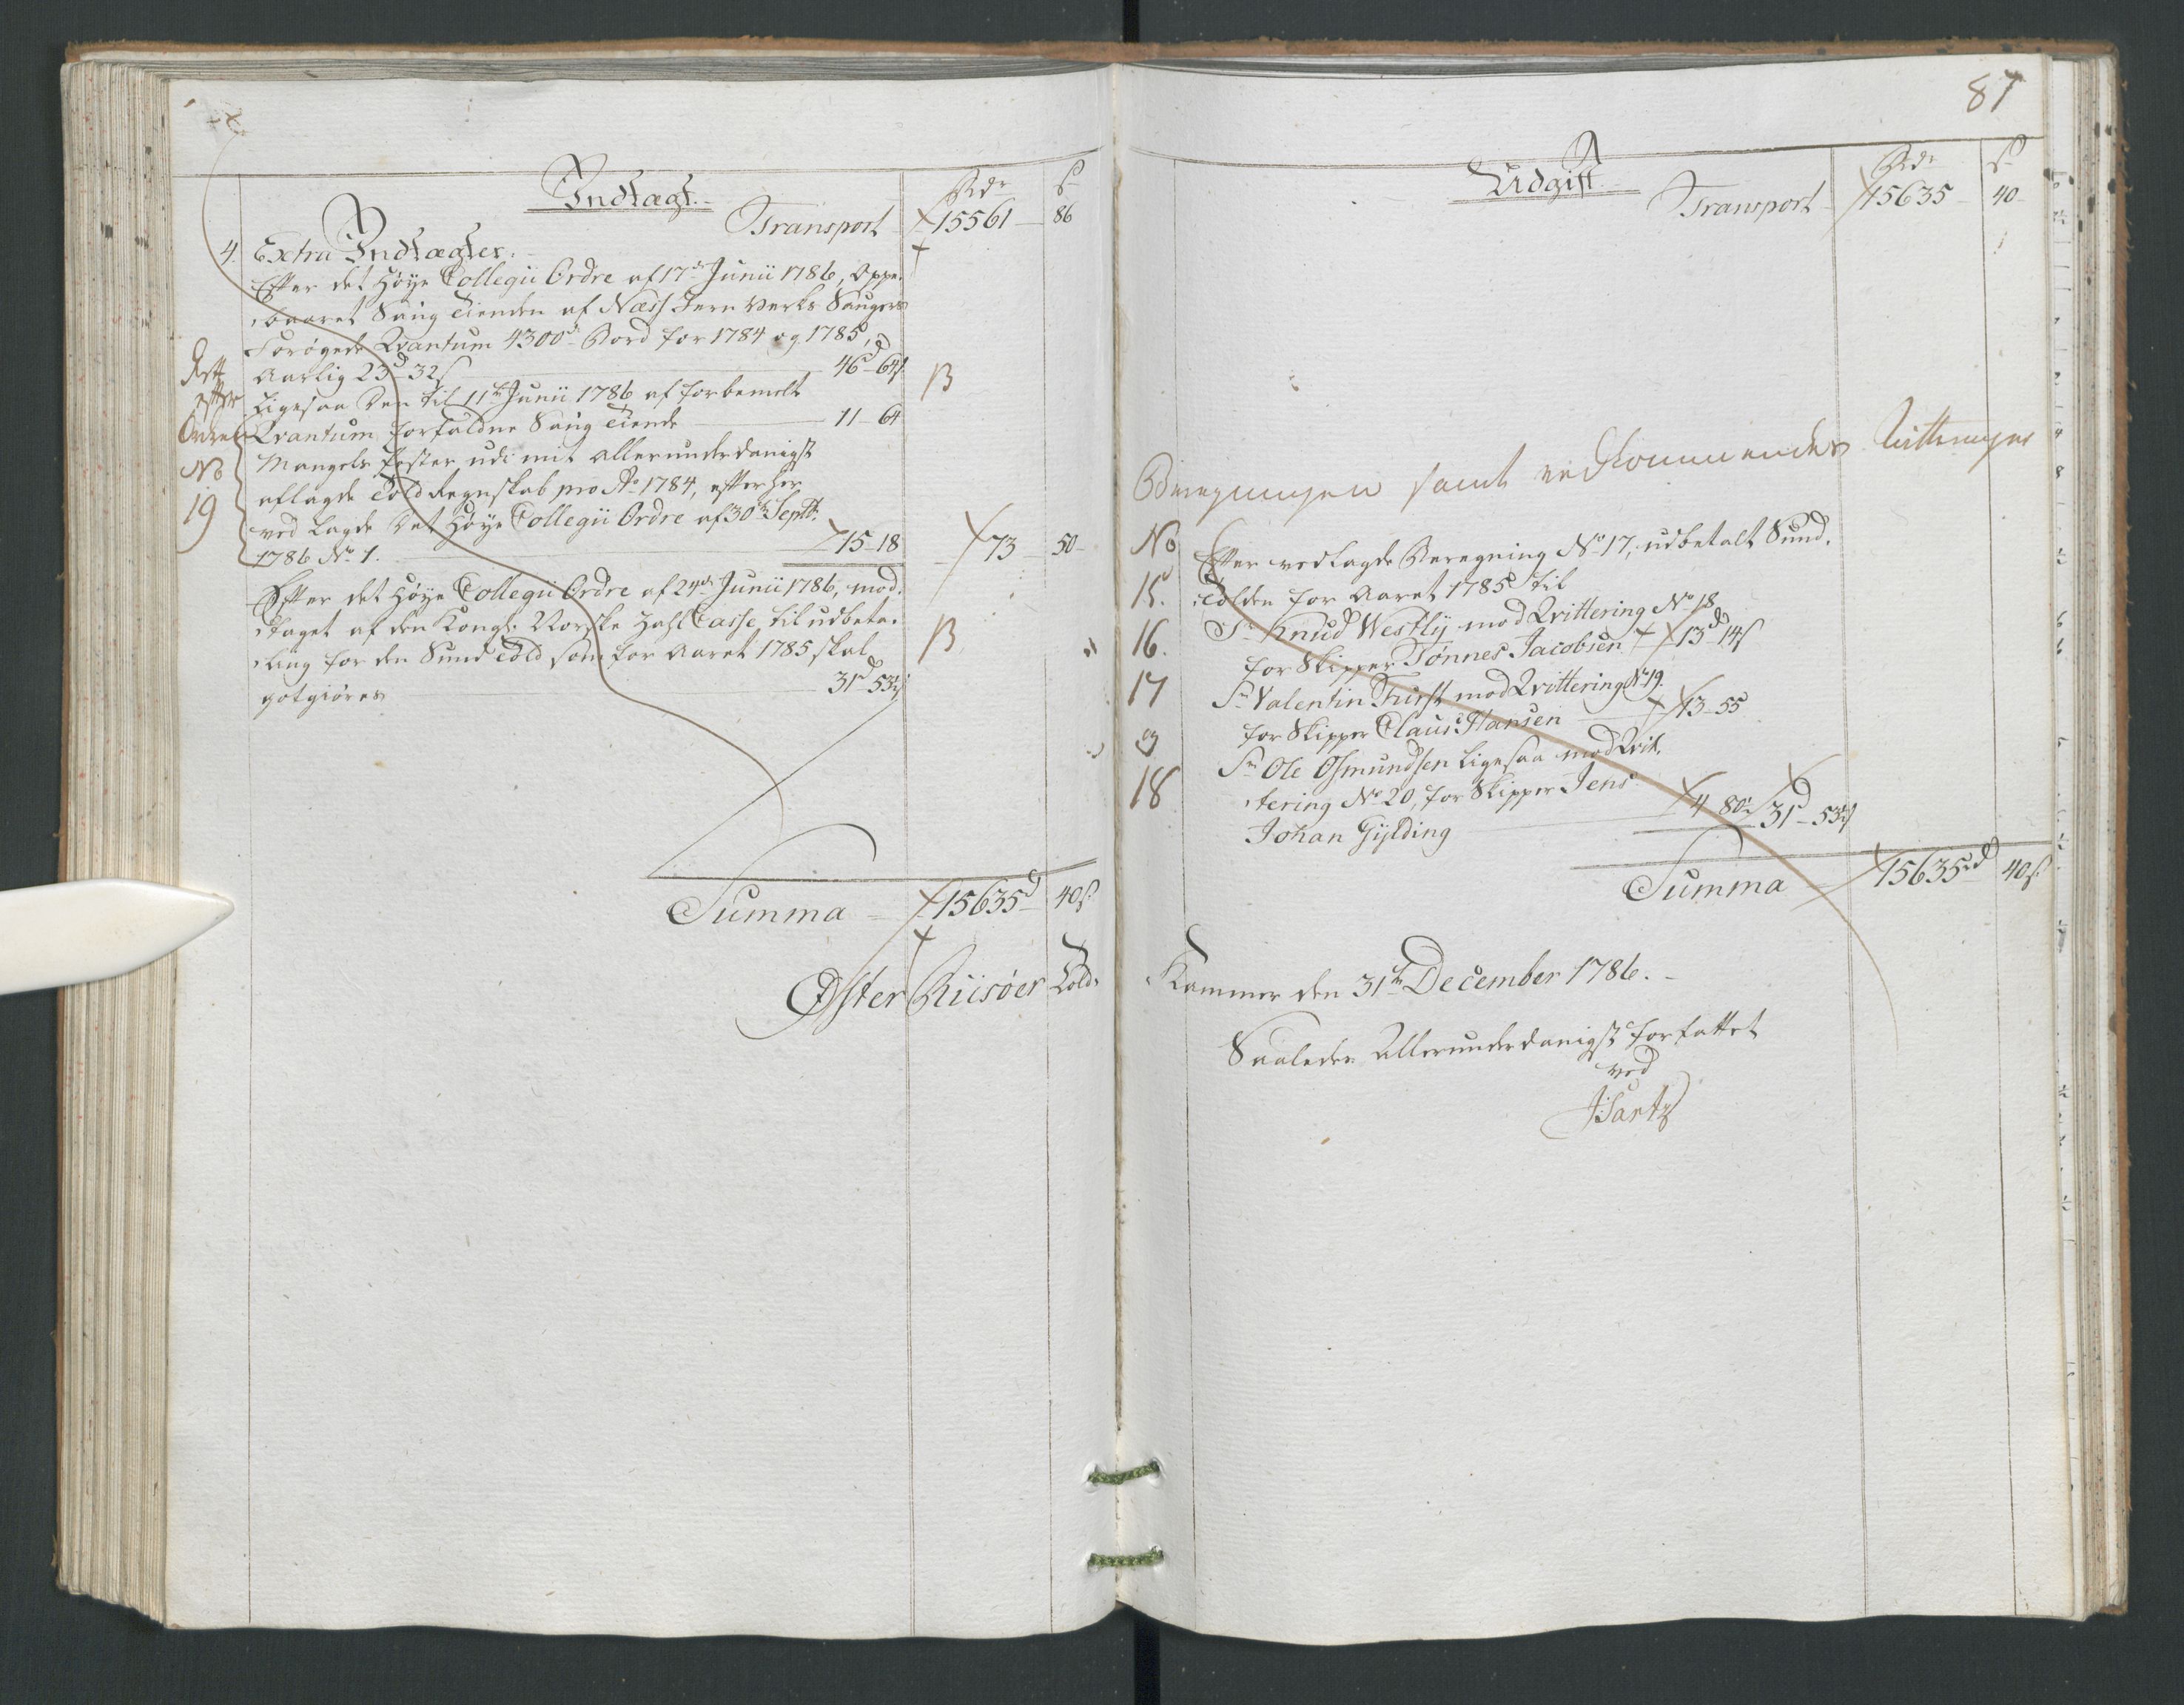 Indtægt.
Rdr
s
Transport
15561
86
4.
Extra Indtægter.
Efter det Høye Collegii Ordre af 17de Junii 1786, oppe-
baaret Saug Tienden af Næss Jern Verks Sauger
Forøgede Qvantum 4300de Bord for 1784 og 1785,
Aarlig 23d 32s
46d 64s
Ligesaa den til 11te Junii 1786 af forbemelt
Qvantum forfaldne Saug Tiende
11 - 64
Mangels Poster udi mit allerunderdanigst
aflagde Told Regnskab pro Ao 1784, efter her
ved lagde det Høye Collegii Ordre af 30te Septbr:
1786 No 1.
15 - 18
73
50
efter
Ordre
No
19
Efter det Høye Collegii Ordre af 24de Junii 1786, mod-
taget af den Kongl: Norske Zahl Casse, til udbeta-
ling for den Sund Told som for Aaret 1785 skal
godtgiøres
31d 53½s
Summa
15635d
40s
Øster Riisøer Told-
87
Udgift
Rdr
s
Transport
15635
40
Beregningen samt vedkommendes Qvitteringer
No
15.
16.
17
og
18
Efter vedlagde Beregning No 17, udbetalt Sund-
Tolden for Aaret 1785 til
Sr Knud Westly mod Qvittering No 18
for Skipper Tønnes Jacobsen
13d 14s
Sr Valentin Furst mod Qvittering No 19.
for Skipper Claus Hansen
13 - 55
Sr Ole Osmundsen ligesaa mod Qvit-
tering No 20, for Skipper Jens
Johan Gylding
4 80½
31d - 53½s
Summa
15635d
40s
Kammer den 31te December 1786.
Saaledes Allerunderdanigst forfattet
ved